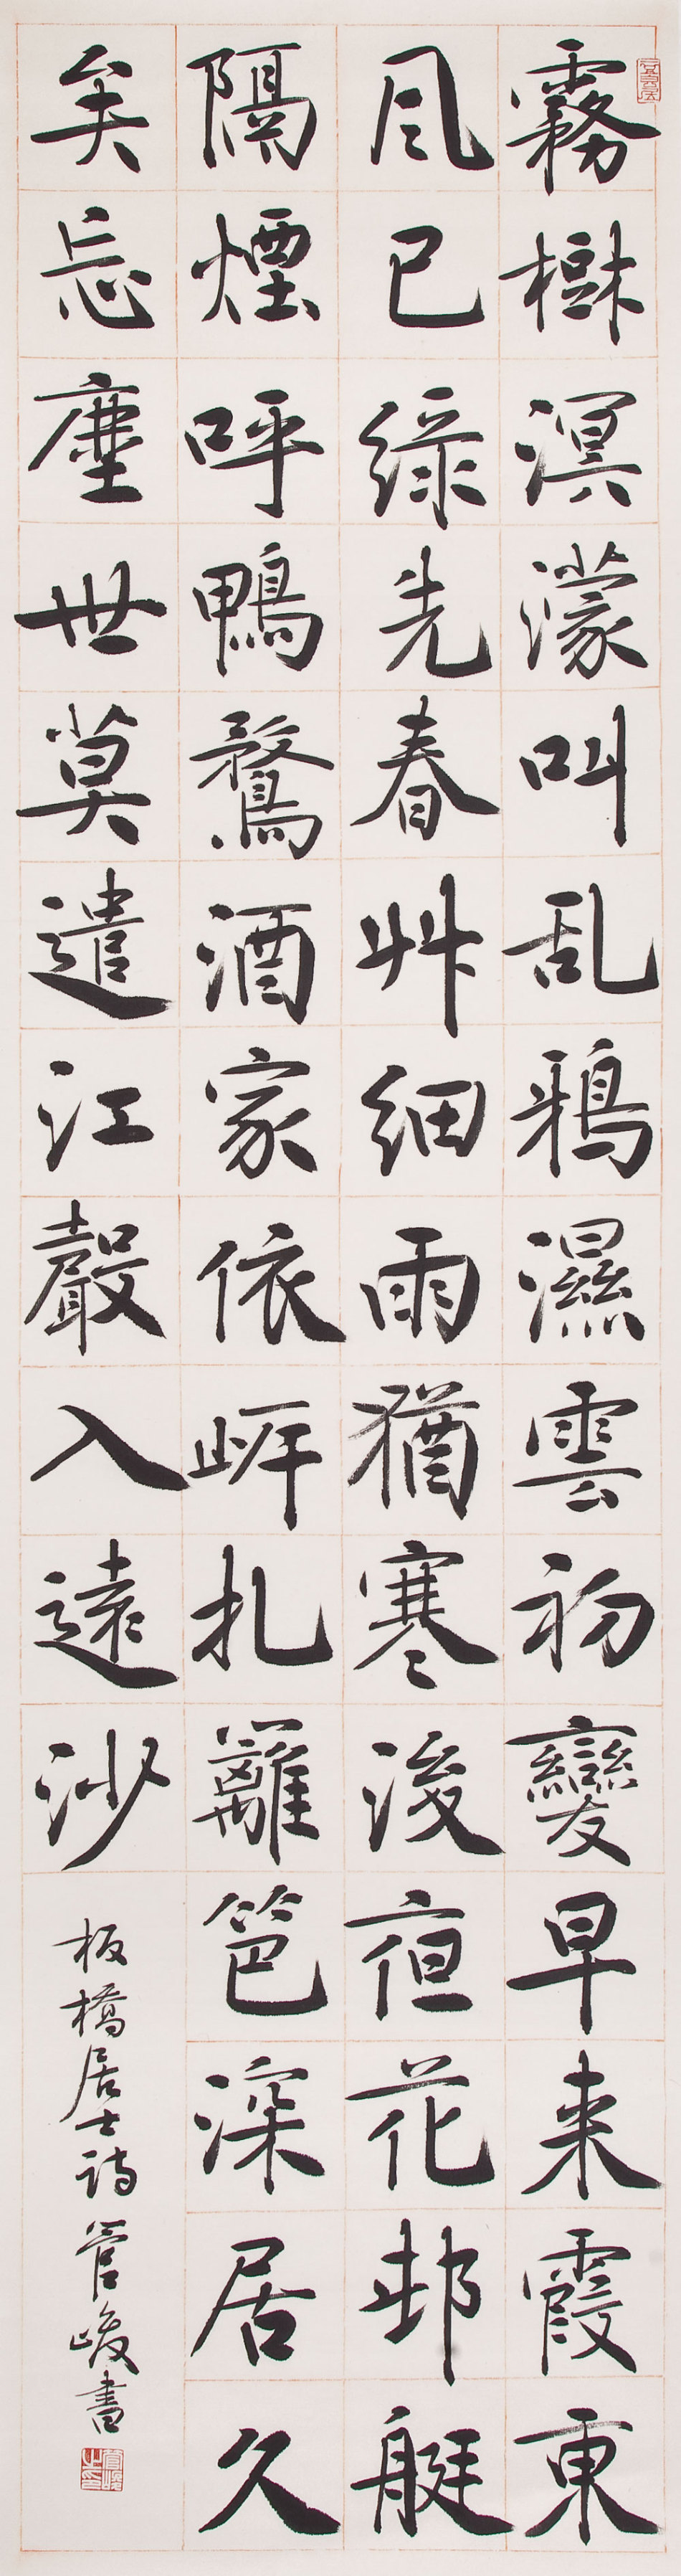 霧樹溟濛叫乱鴉濕雲初變早来霞東
風已綠先春艸細雨猶寒後夜花邨艇
隔煙呼鴨鶩酒家依岸扎籬笆深居久
矣忘塵世莫遣江聲入遠沙
板橋居士詩 管峻書